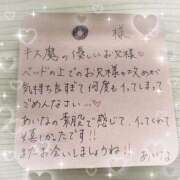 様
ドS魔の優しいお兄様♡
ベッドの上でのお兄様の攻めが
気持ち良すぎて何度もイってしまって
ごめんなさい…♡
あいなの素股で感じて、イってくれて
嬉しかったです!!
またお会いしましょうね!!
あいな